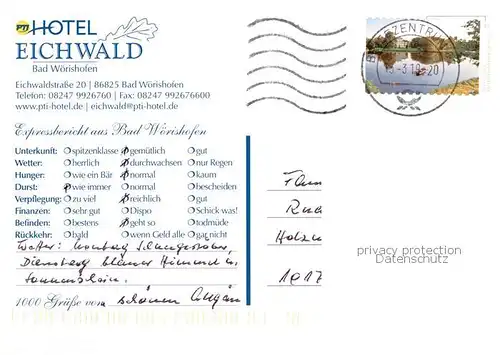 PTI HOTEL
EICHWALD
Bad Wörishofen
Eichwaldstraße 20 | 86825 Bad Wörishofen
Telefon: 08247 9926760 | Fax: 08247 992676600
www.pti-hotel.de | eichwald@pti-hotel.de
Expressbericht aus Bad Wörishofen
Unterkunft: spitzenklasse gemütlich gut
Wetter: herrlich durchwachsen nur Regen
Hunger: wie ein Bär normal kaum
Durst: wie immer normal bescheiden
Verpflegung: zu viel reichlich gut
Finanzen: sehr gut Dispo Schick was!
Befinden: bestens geht so todmüde
Rückkehr: bald wenn Geld alle gar nicht
Wetter: Montag
Dienstag blauer Himmel u.
Sonnenschein.
1000 Grüße vom schönen Allgäu
ZENTRUM
privacy protection
Datenschutz